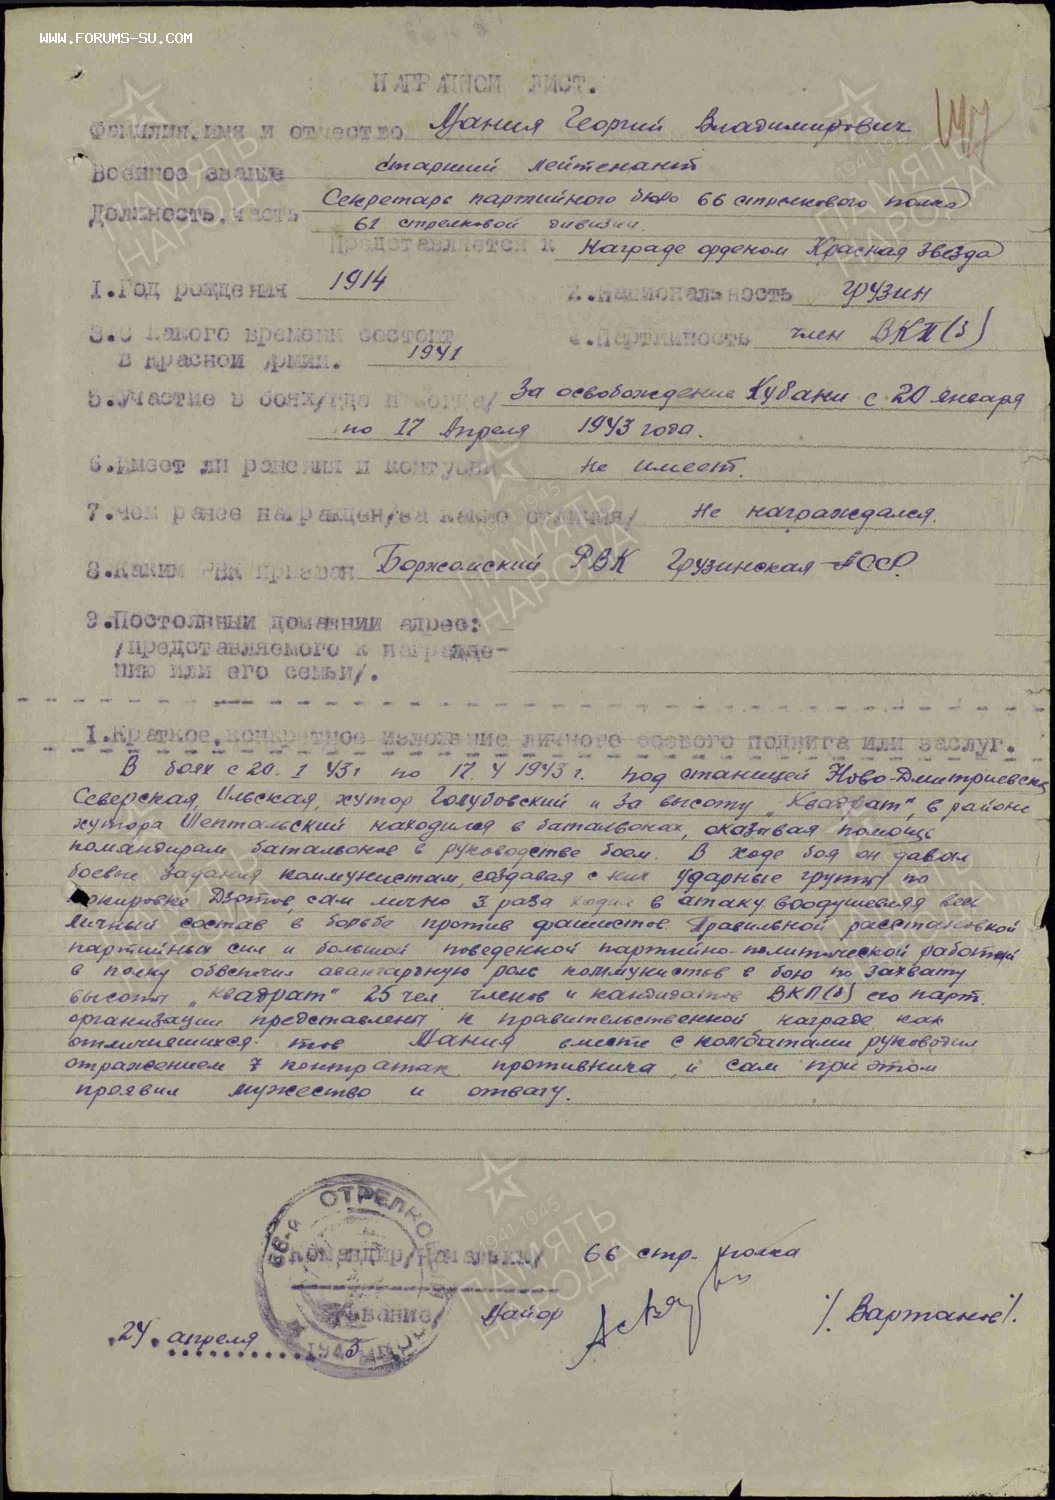 WWW.FORUMS-SU.COM
НАГРАДНОЙ ЛИСТ.
Фамилия, имя и отчество Мания Георгий Владимирович
Военное звание старший лейтенант
Должность, часть Секретарь партийного бюро 66 стрелкового полка
61 стрелковой дивизии.
Представляется к Награде орденом Красная звезда
1. Год рождения 1914 2. Национальность грузин
3. С какого времени состоит 4. Партийность член ВКП(б)
в Красной Армии. 1941
5. Участие в боях/где и когда/ За освобождение Кубани с 20 января
по 17 Апреля 1943 года.
6. Имеет ли ранения и контузии Не имеет.
7. Чем ранее награжден/за какие отличия/ Не награждался.
8. Каким РВК призван Боржомский РВК Грузинская АССР.
9. Постоянный домашний адрес:
/представляемого к награжде-
нию или его семьи/.
1. Краткое, конкретное изложение личного боевого подвига или заслуг.
В боях с 20. 1 43г по 17. 4 1943 г. под станицей Ново-Дмитриевска
Северская, Ильская, хутор Голубовский и за высоту „Квадрат", в районе
хутора Шептальский находился в батальонах, оказывая помощь
командирам батальонов в руководстве боем. В ходе боя он давал
боевые задания коммунистам, создавая с них ударные группы по
блокировке Дзотов, сам лично 3 раза ходил в атаку воодушевляя весь
личный состав в борьбе против фашистов. Правильной расстановкой
партийных сил и большой поведенной партийно-политической работой
в полку обеспечил авангардную роль коммунистов в бою по захвату
высоты „Квадрат" 25 чел. членов и кандидатов ВКП(б) его парт.
организации представлены к правительственной награде как
отличившихся. тов Мания вместе с комбатами руководил
отражением 7 контратак противника, и сам при этом
проявил мужество и отвагу.
66-й СТРЕЛКО
Командир/Начальник/ 66 стр. полка
/звание/ Майор /Вартанов/.
24 апреля 1943
147
ПАМЯТЬ НАРОДА
1941 1945